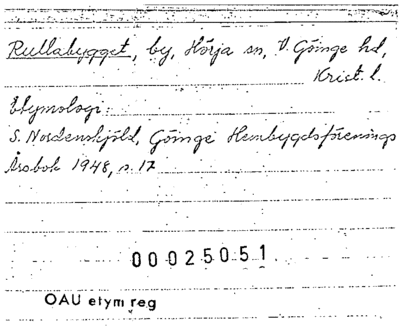 Rullabygget, by, Hörja sn, V. Göinge hd,
Krist. l.
Etymologi:
S. Nordenskjöld, Göinge Hembygdsförenings
Årsbok 1948, s. 17
00025051
OAU etym reg